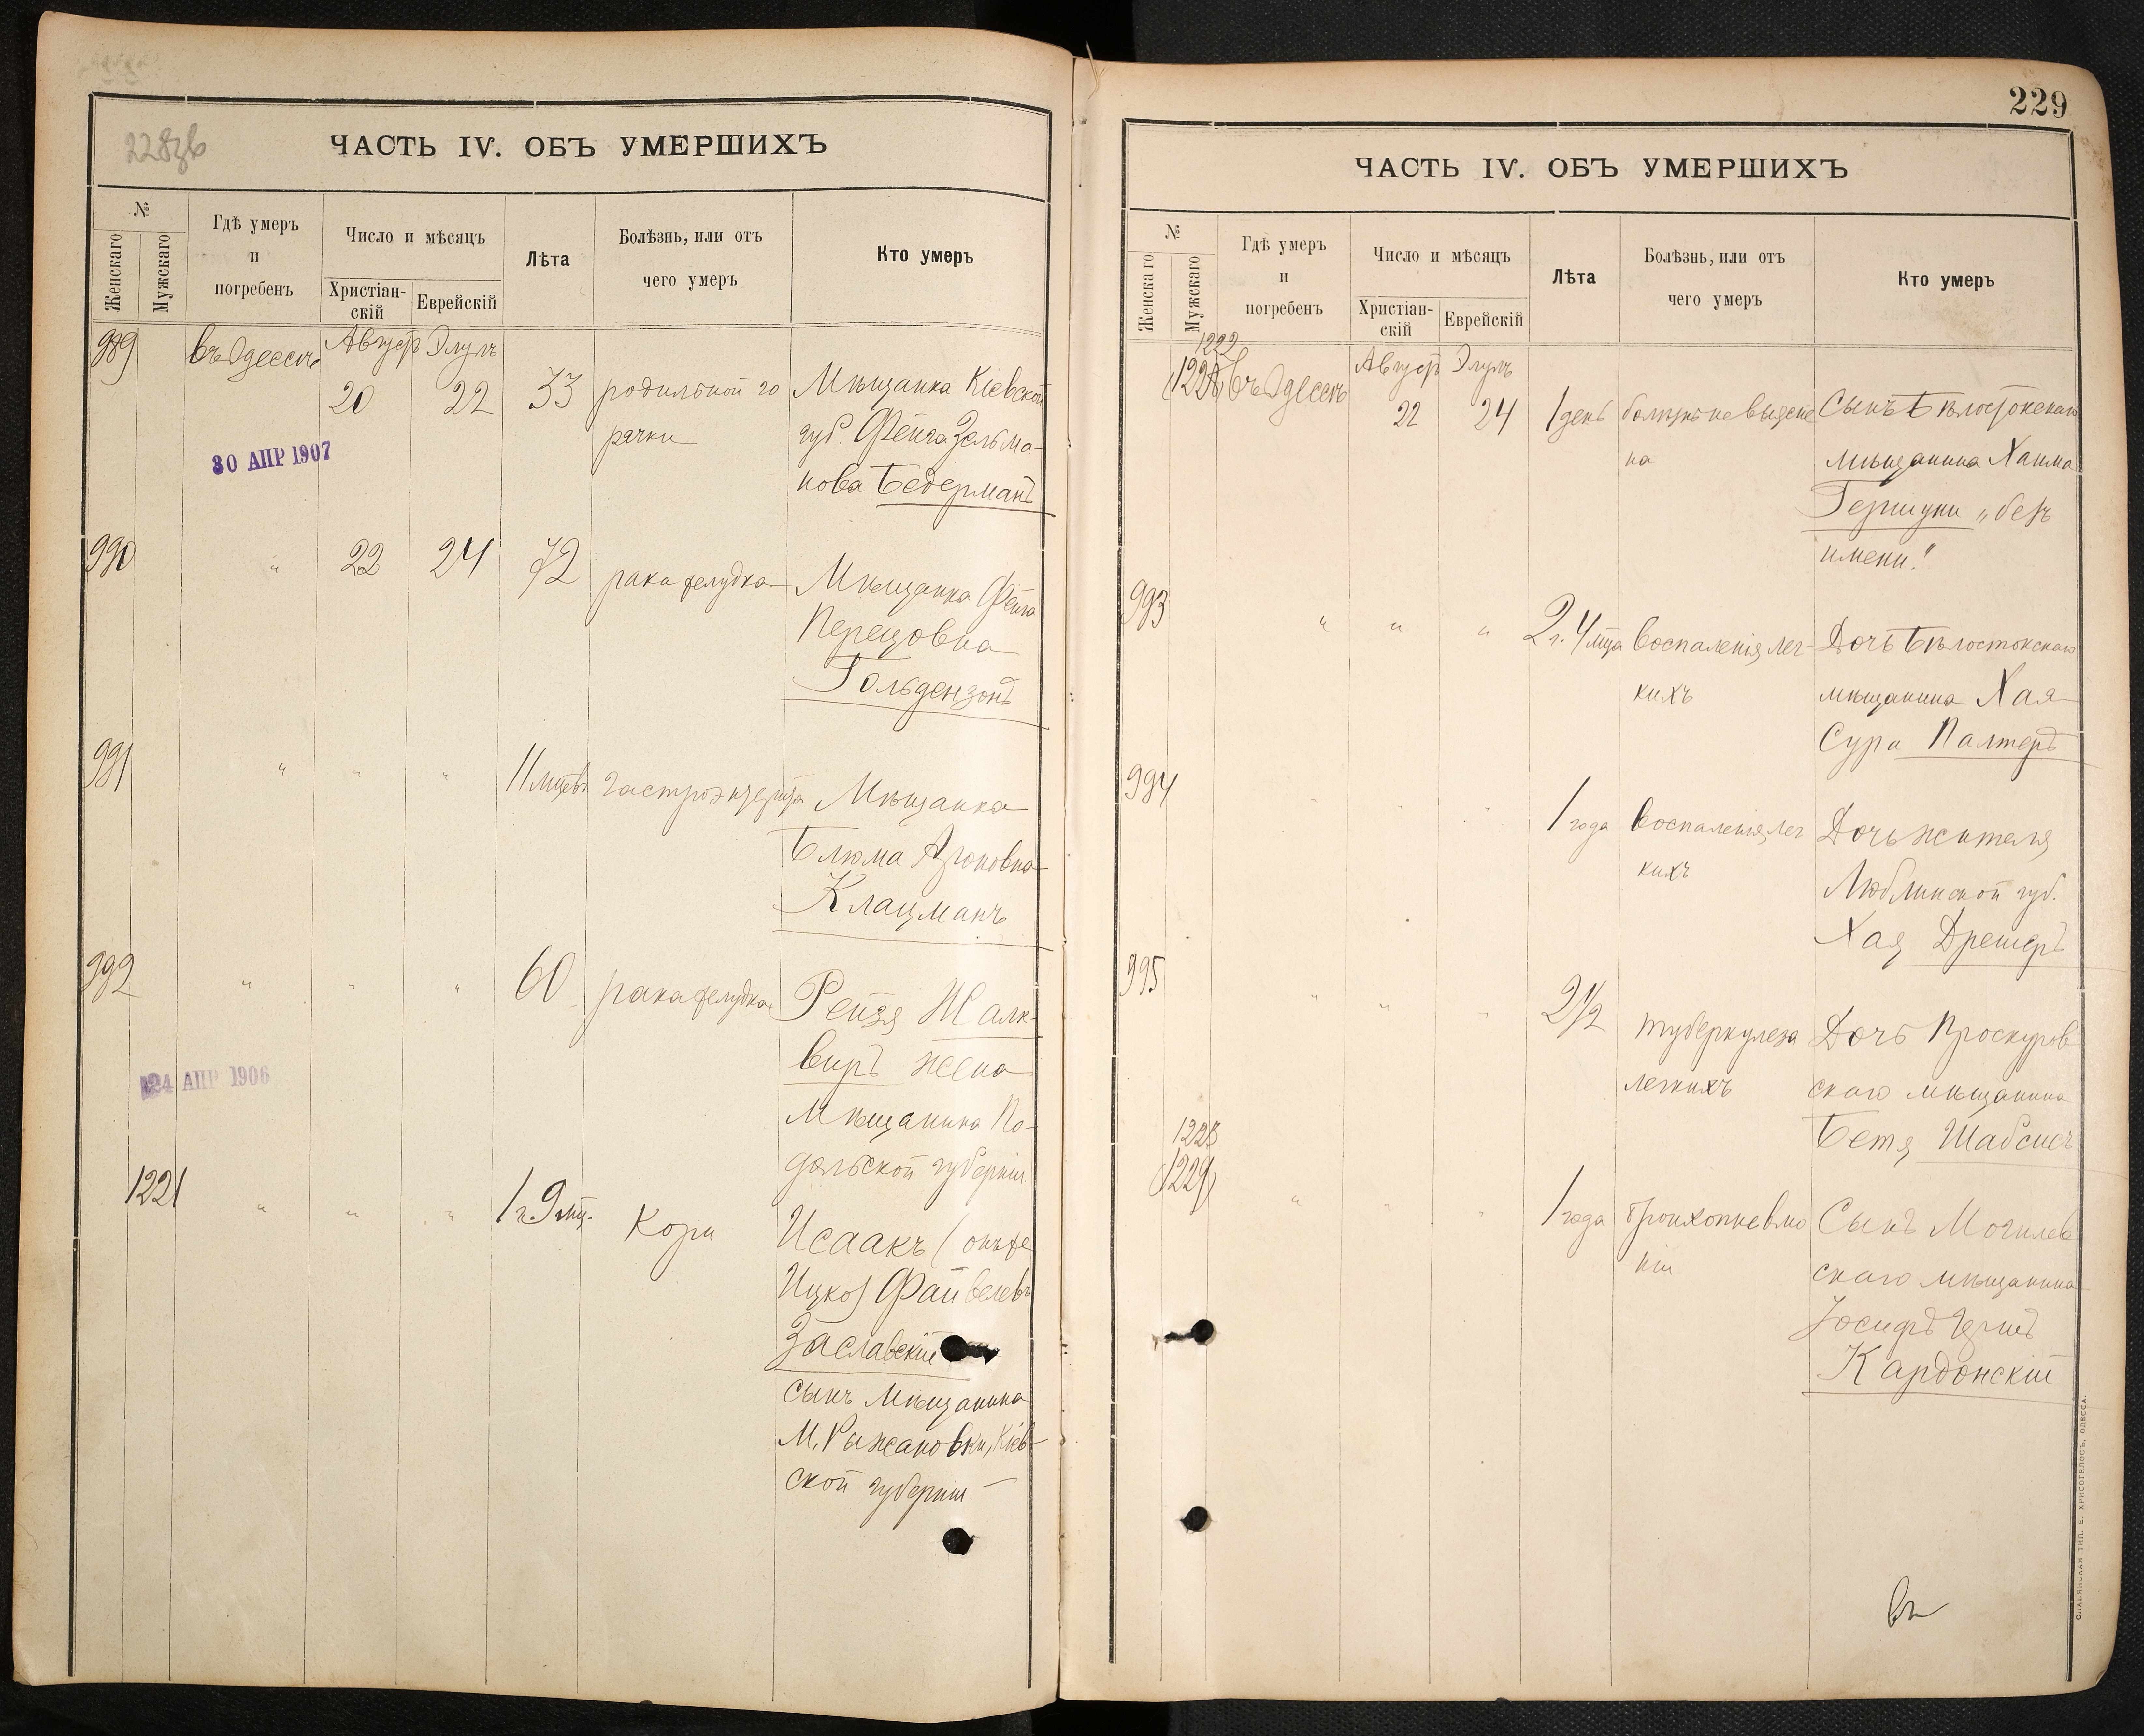 228об
ЧАСТЬ IV. ОБЪ УМЕРШИХЪ
№
Женскаго
Мужскаго
Гдѣ умеръ
и
погребенъ
Число и мѣсяцъ
Христіан-
скій
Еврейскій
Лѣта
Болѣзнь, или отъ
чего умеръ
Кто умеръ
989 въ Одессѣ Август Элулъ
20 22 33 родильной го
рячки
Мѣщанка Кіевской
губ. Фейга Зельма-
нова Бедерманъ
30 АПР 1907
990 " 22 24 72 рака желудка
Мѣщанка Фейга
Перецовна
Гольдензонъ
991 " " " 11 мцевъ гастроэнтерита
Мѣщанка
Блюма Ароновна
Клацманъ
992 " " " 60 рака желудка
Рейзя Жалк-
виръ жена
мѣщанина По-
дольской губерніи
24 АПР 1906
1221 " " " 1 г 9 мц. Кори
Исаакъ (онъ же
Ицко) Файвелевъ
Заславскій
сынъ мѣщанина
М. Рыжановки, Кіев-
ской губерніи.
229
ЧАСТЬ IV. ОБЪ УМЕРШИХЪ
№
Женскаго
Мужскаго
Гдѣ умеръ
и
погребенъ
Число и мѣсяцъ
Христіан-
скій
Еврейскій
Лѣта
Болѣзнь, или отъ
чего умеръ
Кто умеръ
1222
въ Одессѣ Август Элулъ
22 24 1 день болѣзнь не выясне
на
Сынъ Бѣлостокскаго
мѣщанина Хаима
Гершуни „безъ
имени"
993 " " " 2 г. 4 мца воспаленія лег-
кихъ
Дочь Бѣлостокскаго
мѣщанина Хая
Сура Палтеръ
994 " " " 1 года воспаленія лег
кихъ
Дочь жителя
Люблинской губ.
Хая Дрешеръ
995 " " " 2 1/2 туберкулеза
легкихъ
Дочь Проскуров
скаго мѣщанина
Бетя Шабсисъ
1223
(1229)
" " " 1 года бронхопневмо
ніи
Сынъ Могилев
скаго мѣщанина
Іосифъ Гершъ
Кардонскій
СЛАВЯНСКАЯ ТИП. Е. ХРИСОГЕЛОСЪ, ОДЕССА.